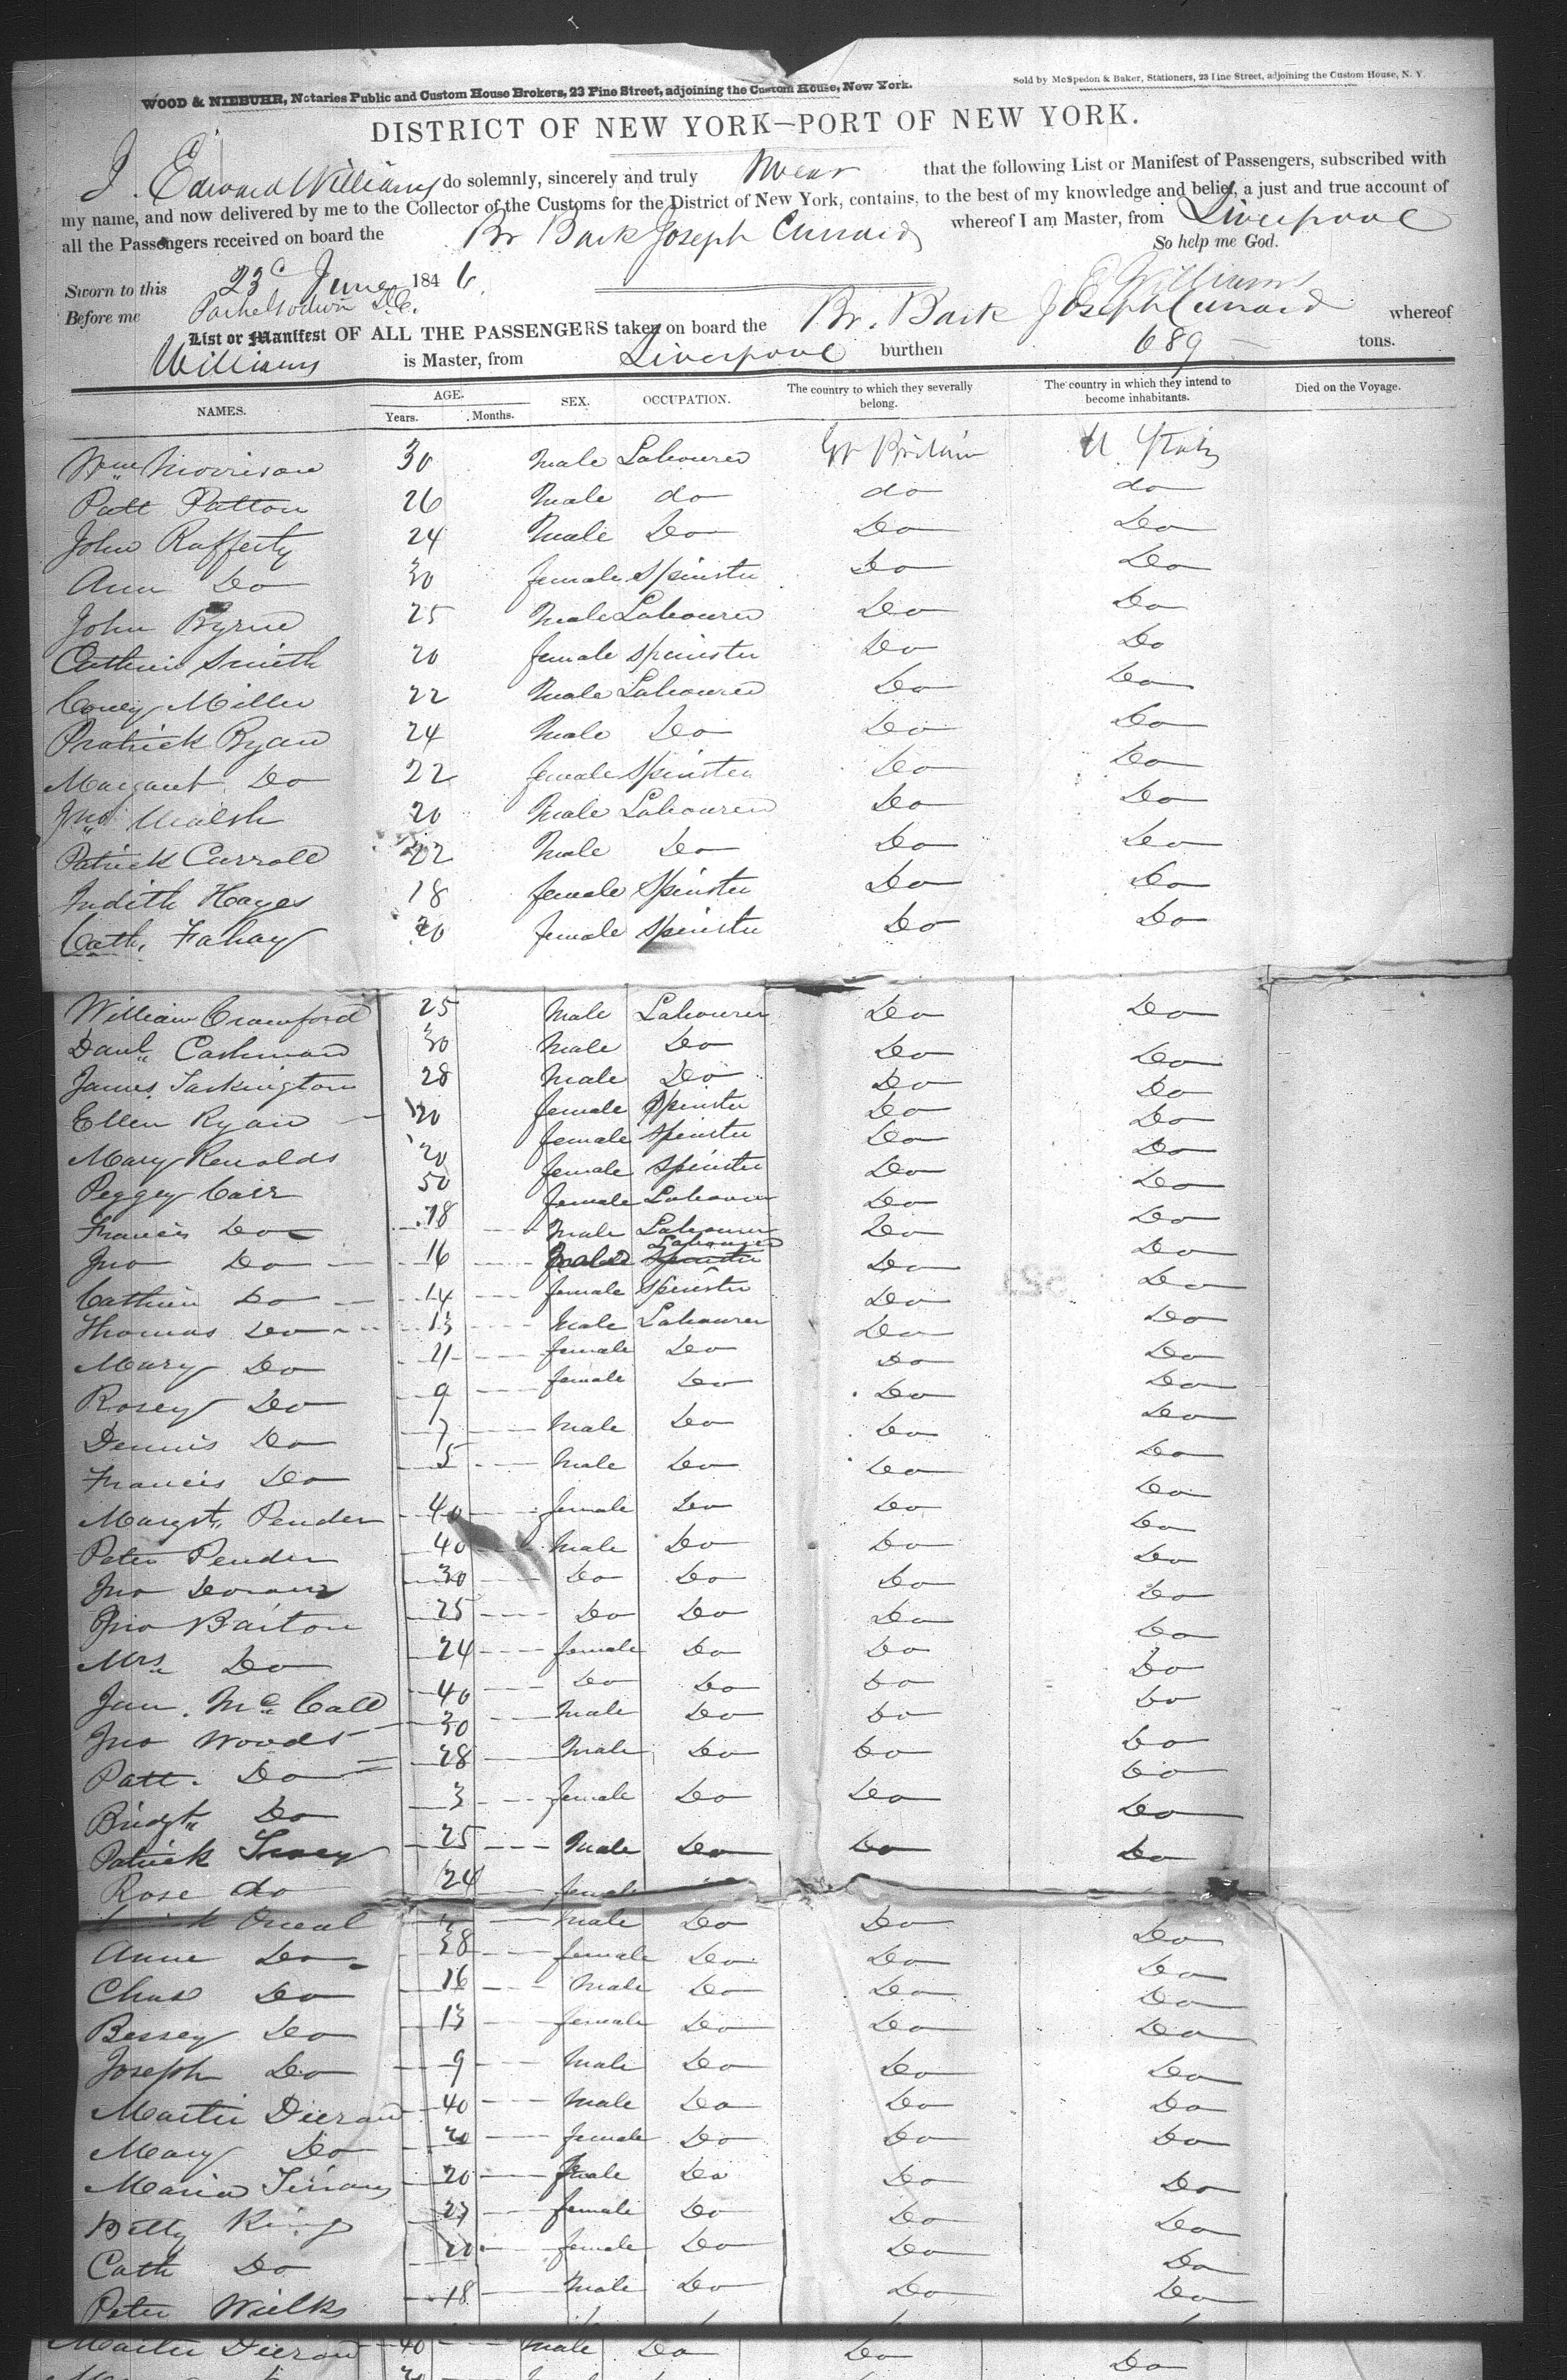 WOOD & NIEBUHR, Notaries Public and Custom House Brokers, 23 Pine Street, adjoining the Custom House, New York.
Sold by McSpedon & Baker, Stationers, 23 Pine Street, adjoining the Custom House, N. Y.
DISTRICT OF NEW YORK—PORT OF NEW YORK.
I. Edward Williams do solemnly, sincerely and truly swear that the following List or Manifest of Passengers, subscribed with
my name, and now delivered by me to the Collector of the Customs for the District of New York, contains, to the best of my knowledge and belief, a just and true account of
all the Passengers received on board the Br Bark Joseph Cunard whereof I am Master, from Liverpool
So help me God.
Sworn to this 23d June 1846. E Williams
Before me D.C.
List or Manifest OF ALL THE PASSENGERS taken on board the Br. Bark Joseph Cunard whereof
Williams is Master, from Liverpool burthen 689 tons.
NAMES. AGE. Years. Months. SEX. OCCUPATION. The country to which they severally belong. The country in which they intend to become inhabitants. Died on the Voyage.
Wm Morrison 30 Male Labourer Gt Britain U States
Patt Patton 26 Male do do do
John Rafferty 24 Male Do Do Do
Ann Do 30 female Spinster Do Do
John Byrne 25 Male Labourer Do Do
Cathrin Smith 20 female Spinster Do Do
Miller 22 Male Labourer Do Do
Patrick Ryan 24 Male Do Do Do
Margaret Do 22 female Spinster Do Do
Jno Walsh 20 Male Labourer Do Do
Patrick Carroll 22 Male Do Do Do
Judith Hayes 18 female Spinster Do Do
Cath. Fahay 20 female Spinster Do Do
William Crawford 25 Male Labourer Do Do
Danl Cashman 30 Male Do Do Do
James Tarkington 28 Male Do Do Do
Ellen Ryan 20 female Spinster Do Do
Mary Renolds 20 female Spinster Do Do
Peggey Carr 50 female Spinster Do Do
Francis Do 18 female Labourer Do Do
Jno Do 16 Male Labourer Do Do
Cathrin Do 14 female Spinster Do Do
Thomas Do 13 Male Labourer Do Do
Mary Do 11 female Do Do Do
Rosey Do 9 female Do Do Do
Dennis Do 7 Male Do Do Do
Francis Do 5 Male Do Do Do
Margt Pender 40 female Do Do Do
Peter Pender 40 Male Do Do Do
Jno Doran 30 Do Do Do Do
Jno Barton 25 Do Do Do Do
Mrs Do 24 female Do Do Do
McCall 40 Do Do Do Do
Jno Woods 30 Male Do Do Do
Patt. Do 28 Male Do Do Do
Bridgt Do 3 female Do Do Do
Patrick Tracey 25 Male Do Do Do
Rose do 24 female
Oneal Male Do Do Do
Anne Do 38 female Do Do Do
Chas Do 16 Male Do Do Do
Bessey Do 13 female Do Do Do
Joseph Do 9 Male Do Do Do
Martin Dieran 40 Male Do Do Do
Mary Do female Do Do Do
Maria 20 female Do Do Do
Betty King 27 female Do Do Do
Cath Do 20 female Do Do Do
Peter Wilks 18 Male Do Do Do
Martin Dieran 40 Male Do Do Do